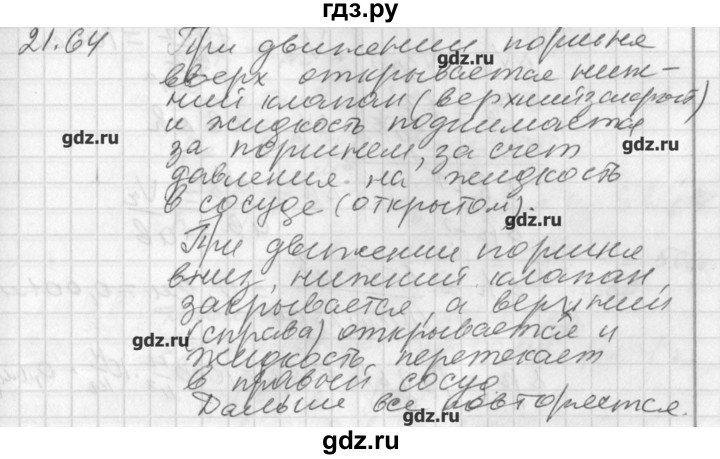 гдз.ру
21.64 При движении поршня
вверх открывается ниж-
ний клапан (верхний закрыт)
и жидкость поднимается
за поршнем, за счет
давления на жидкость
в сосуде (открытом).
При движении поршня
вниз, нижний клапан
закрывается, а верхний
(справа) открывается и
жидкость перетекает
в правый сосуд
Дальше все повторяется.
gdz.ru
gdz.ru
gdz.ru
gdz.ru
gdz.ru
gdz.ru
gdz.ru